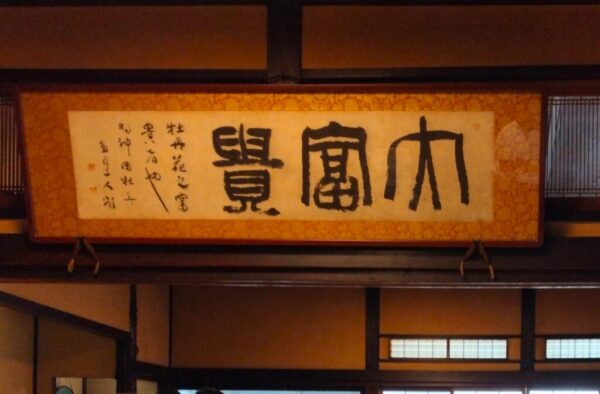 大富貴
牡丹花之富
貴者也
神田